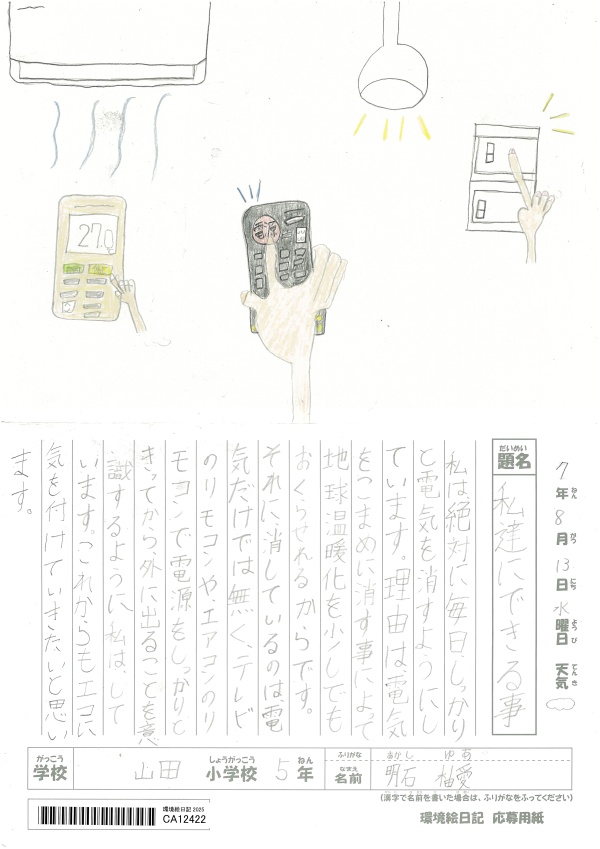 27.0
7年8月13日水曜日 天気
ねん がつ にち ようび てんき
だいめい
題名
私達にできる事
私は絶対に毎日しっかり
と電気を消すようにし
ています。理由は、電気
をこまめに消す事によって
地球温暖化を少しでも
おくらせれるからです。
それに、消しているのは、電
気だけでは無く、テレビ
のリモコンや、エアコンのリ
モコンで電源をしっかりと
きってから、外に出ることを意
識するように、私は、して
います。これからもエコに
気を付けていきたいと思い
ます。
がっこう しょうがっこう ねん ふりがな あかし ゆあ
学校 山田 小学校 5年 なまえ 名前 明石 柚愛
(漢字で名前を書いた場合は、ふりがなをふってください)
環境絵日記 2025
CA12422
環境絵日記 応募用紙